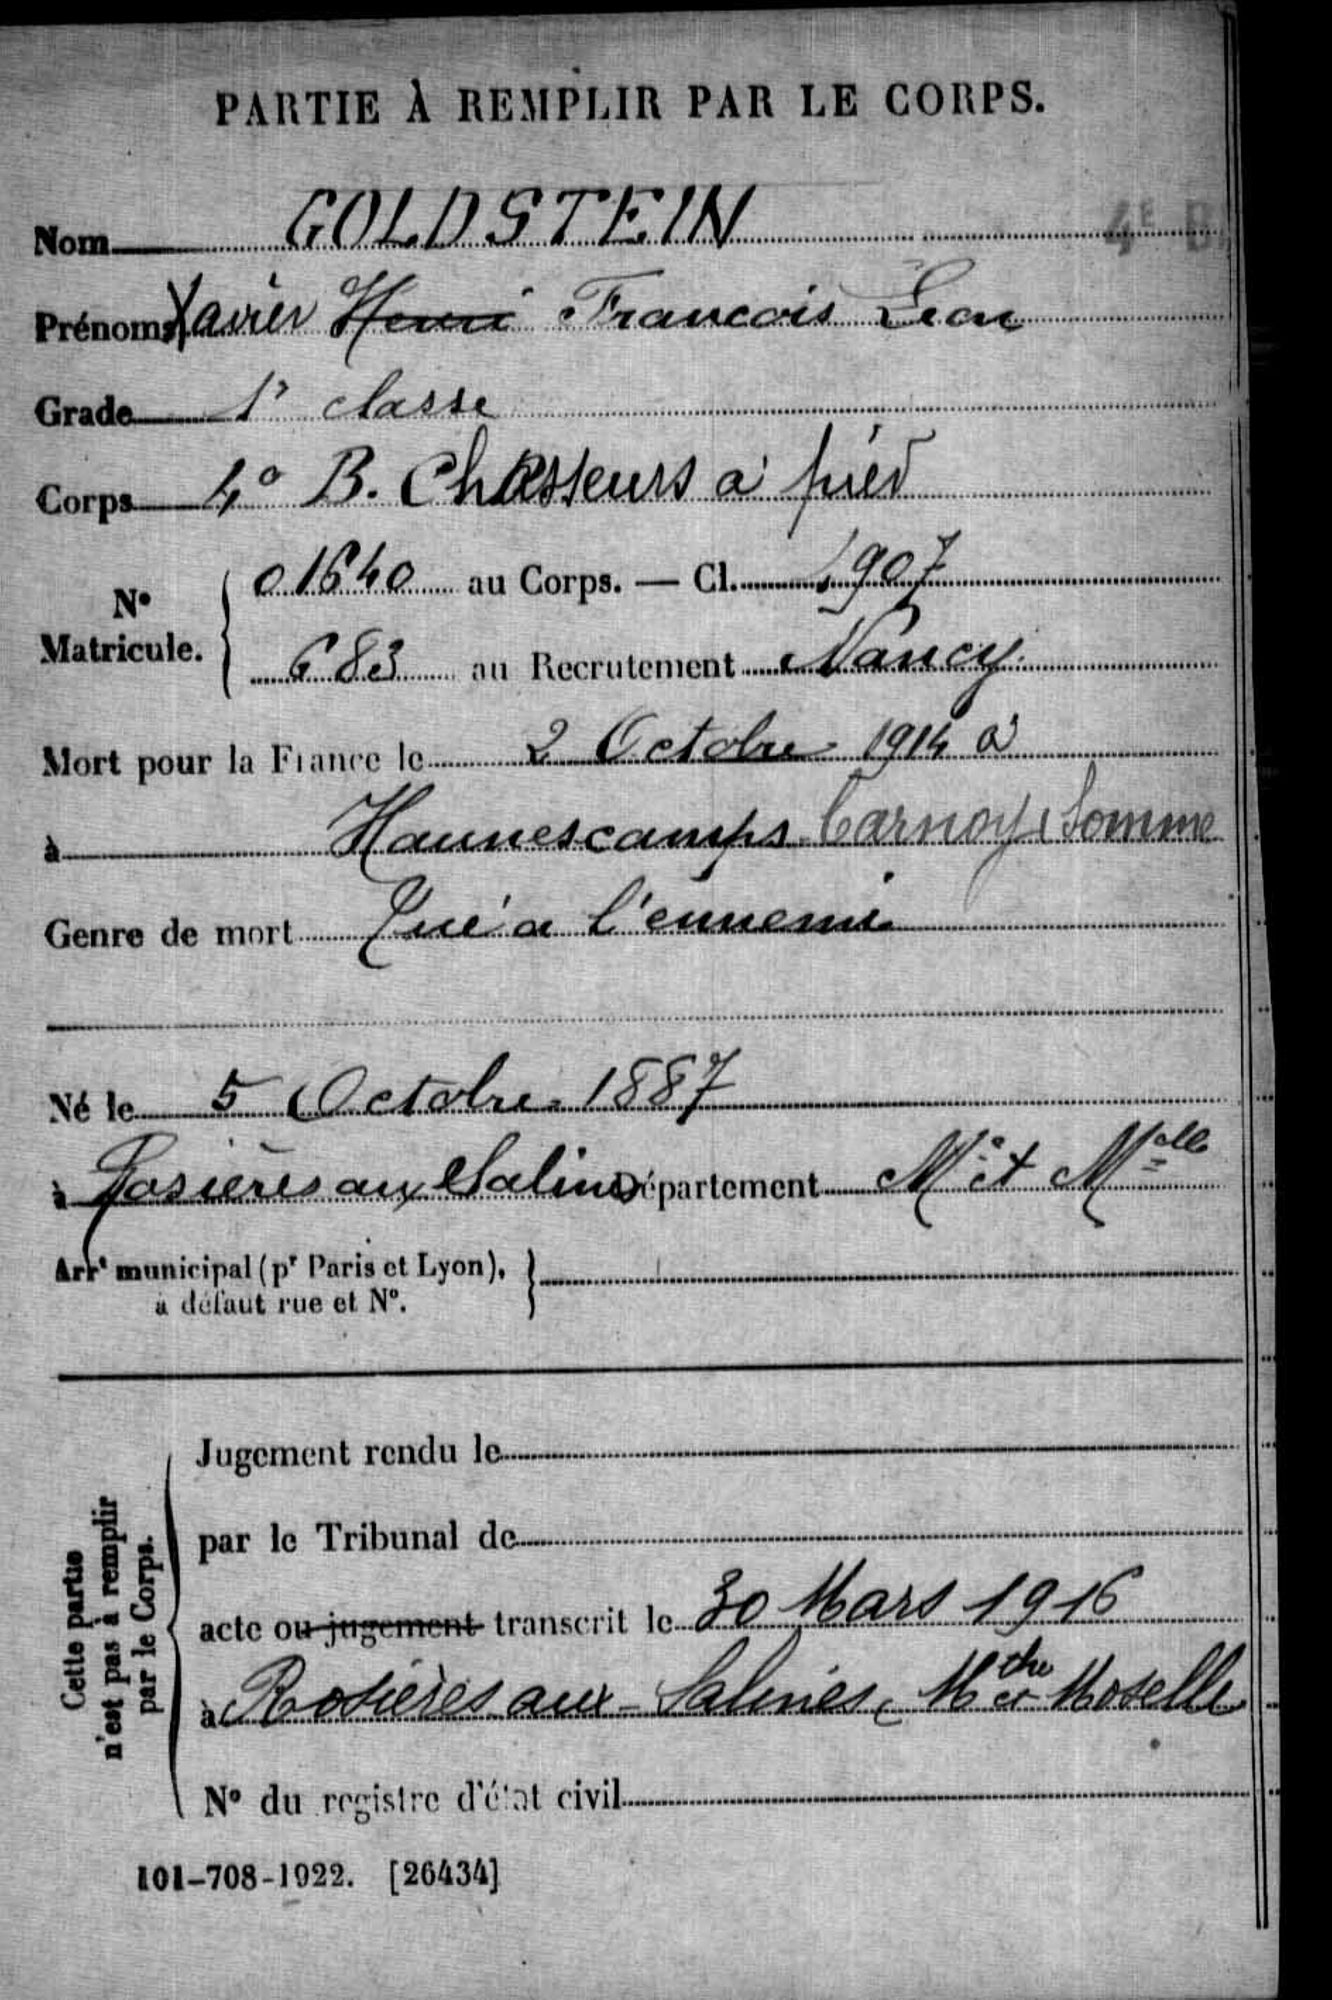 PARTIE À REMPLIR PAR LE CORPS.
Nom GOLDSTEIN 4E B
Prénoms Xavier Henri Francois Leon
Grade 1r classe
Corps 4° B. Chasseurs a pied
N° Matricule. 01640 au Corps. — Cl. 1907
683 au Recrutement Nancy
Mort pour la France le 2 Octobre 1914 à
à Hannescamps Carnoy, Somme
Genre de mort Tué a l'ennemi
Né le 5 Octobre 1887
à Rosières aux Salines Département M.et Melle
Arrt municipal (pr Paris et Lyon),
à défaut rue et N°.
Cette partie n'est pas à remplir par le Corps.
Jugement rendu le
par le Tribunal de
acte ou jugement transcrit le 30 Mars 1916
à Rosières aux-Salines, Mthe et Moselle
N° du registre d'état civil
101-708-1922. [26434]